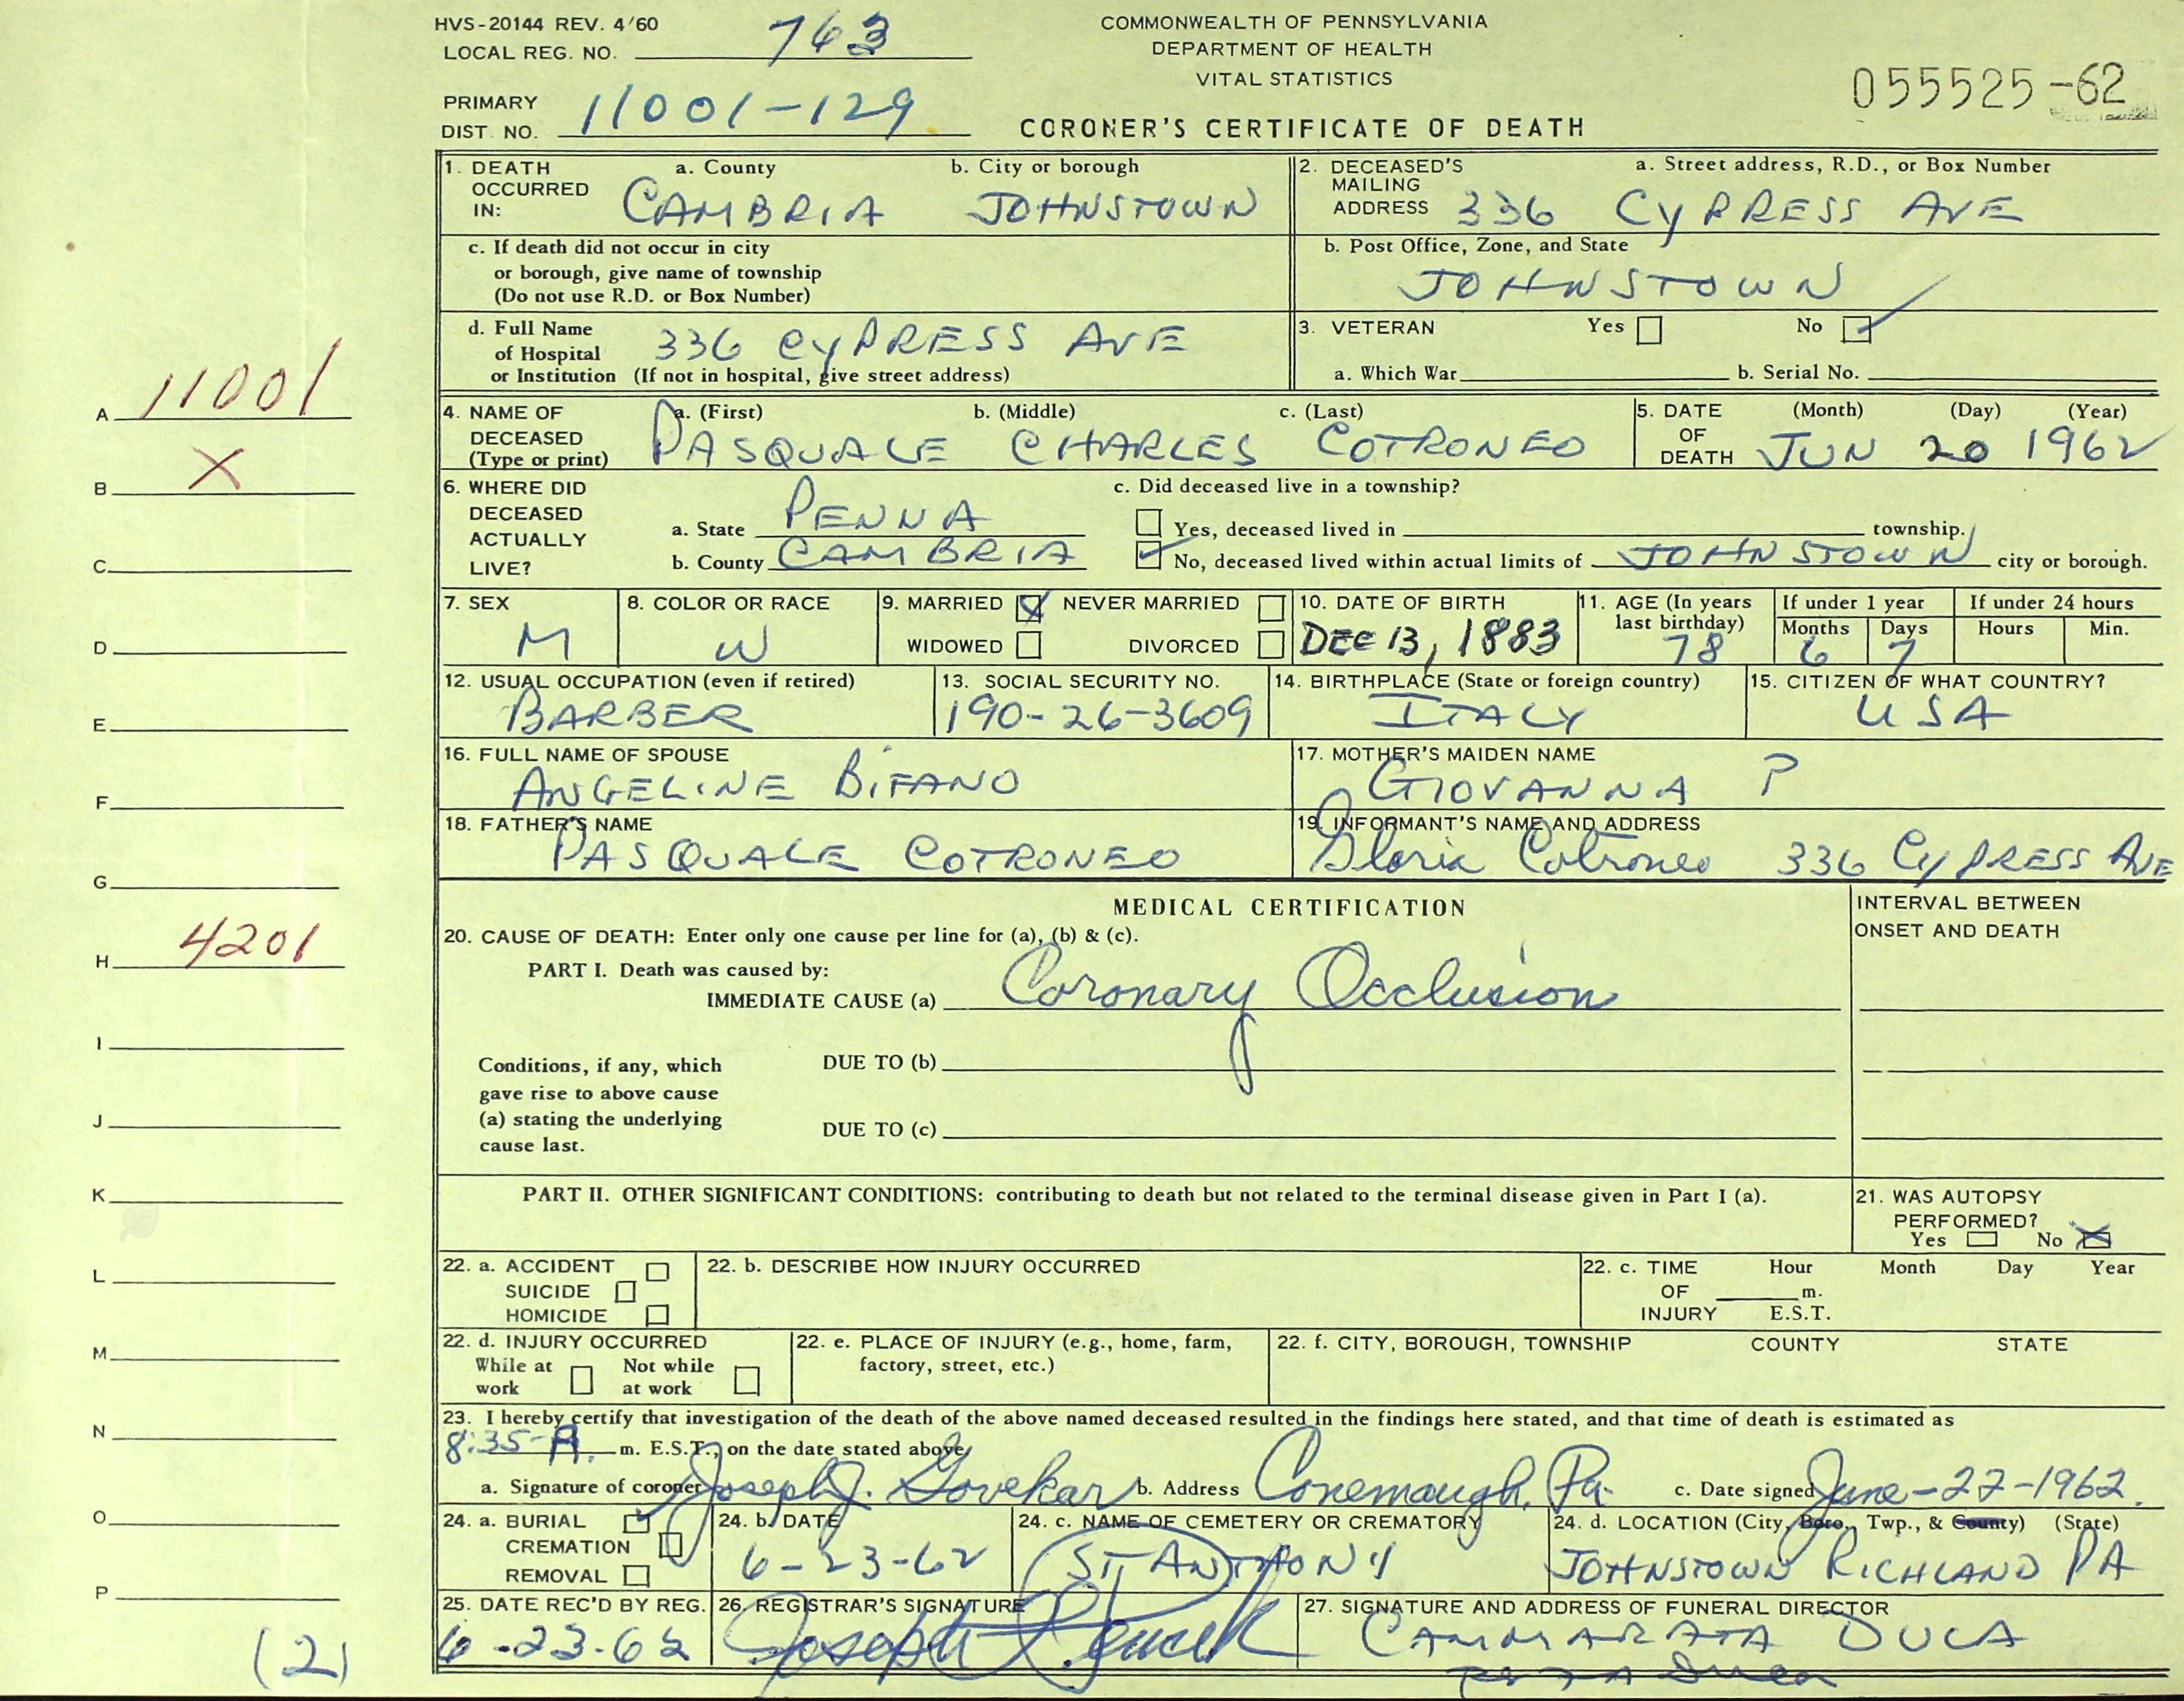 HVS-20144 REV. 4/60
LOCAL REG. NO. 763
COMMONWEALTH OF PENNSYLVANIA
DEPARTMENT OF HEALTH
VITAL STATISTICS
PRIMARY
DIST. NO. 11001-129
CORONER'S CERTIFICATE OF DEATH
055525-62
1. DEATH OCCURRED IN: a. County CAMBRIA b. City or borough JOHNSTOWN
2. DECEASED'S MAILING ADDRESS a. Street address, R.D., or Box Number 336 CYPRESS AVE
c. If death did not occur in city
or borough, give name of township
(Do not use R.D. or Box Number)
b. Post Office, Zone, and State
JOHNSTOWN
d. Full Name
of Hospital 336 CYPRESS AVE
or Institution (If not in hospital, give street address)
3. VETERAN Yes No
a. Which War b. Serial No.
A 11001
4. NAME OF DECEASED (Type or print) a. (First) PASQUALE b. (Middle) CHARLES c. (Last) COTRONEO
5. DATE OF DEATH (Month) JUN (Day) 20 (Year) 1962
B X
6. WHERE DID DECEASED ACTUALLY LIVE?
a. State PENNA
b. County CAMBRIA
c. Did deceased live in a township?
Yes, deceased lived in township.
No, deceased lived within actual limits of JOHNSTOWN city or borough.
C
7. SEX M
8. COLOR OR RACE W
9. MARRIED X NEVER MARRIED
WIDOWED DIVORCED
10. DATE OF BIRTH DEC 13, 1883
11. AGE (In years last birthday) 78
If under 1 year Months 6 Days 7
If under 24 hours Hours Min.
D
12. USUAL OCCUPATION (even if retired) BARBER
13. SOCIAL SECURITY NO. 190-26-3609
14. BIRTHPLACE (State or foreign country) ITALY
15. CITIZEN OF WHAT COUNTRY? USA
E
16. FULL NAME OF SPOUSE ANGELINE BIFANO
17. MOTHER'S MAIDEN NAME GIOVANNA ?
F
18. FATHER'S NAME PASQUALE COTRONEO
19. INFORMANT'S NAME AND ADDRESS Gloria Cotroneo 336 CYPRESS AVE
G
MEDICAL CERTIFICATION
INTERVAL BETWEEN
ONSET AND DEATH
20. CAUSE OF DEATH: Enter only one cause per line for (a), (b) & (c).
H 4201
PART I. Death was caused by:
IMMEDIATE CAUSE (a) Coronary Occlusion
I
Conditions, if any, which
gave rise to above cause
(a) stating the underlying
cause last.
DUE TO (b)
DUE TO (c)
J
K
PART II. OTHER SIGNIFICANT CONDITIONS: contributing to death but not related to the terminal disease given in Part I (a).
21. WAS AUTOPSY
PERFORMED?
Yes No X
L
22. a. ACCIDENT
SUICIDE
HOMICIDE
22. b. DESCRIBE HOW INJURY OCCURRED
22. c. TIME OF INJURY Hour m. E.S.T. Month Day Year
M
22. d. INJURY OCCURRED
While at work Not while at work
22. e. PLACE OF INJURY (e.g., home, farm,
factory, street, etc.)
22. f. CITY, BOROUGH, TOWNSHIP COUNTY STATE
N
23. I hereby certify that investigation of the death of the above named deceased resulted in the findings here stated, and that time of death is estimated as
8:35 A. m. E.S.T., on the date stated above
a. Signature of coroner Joseph J. Govekar b. Address Conemaugh, Pa. c. Date signed June-22-1962.
O
24. a. BURIAL
CREMATION
REMOVAL
24. b. DATE 6-23-62
24. c. NAME OF CEMETERY OR CREMATORY ST ANTHONY
24. d. LOCATION (City, Boro., Twp., & County) (State)
JOHNSTOWN RICHLAND PA
P
25. DATE REC'D BY REG. 6-23-62
26. REGISTRAR'S SIGNATURE Joseph
27. SIGNATURE AND ADDRESS OF FUNERAL DIRECTOR
CAMMARATA DUCA
(2)